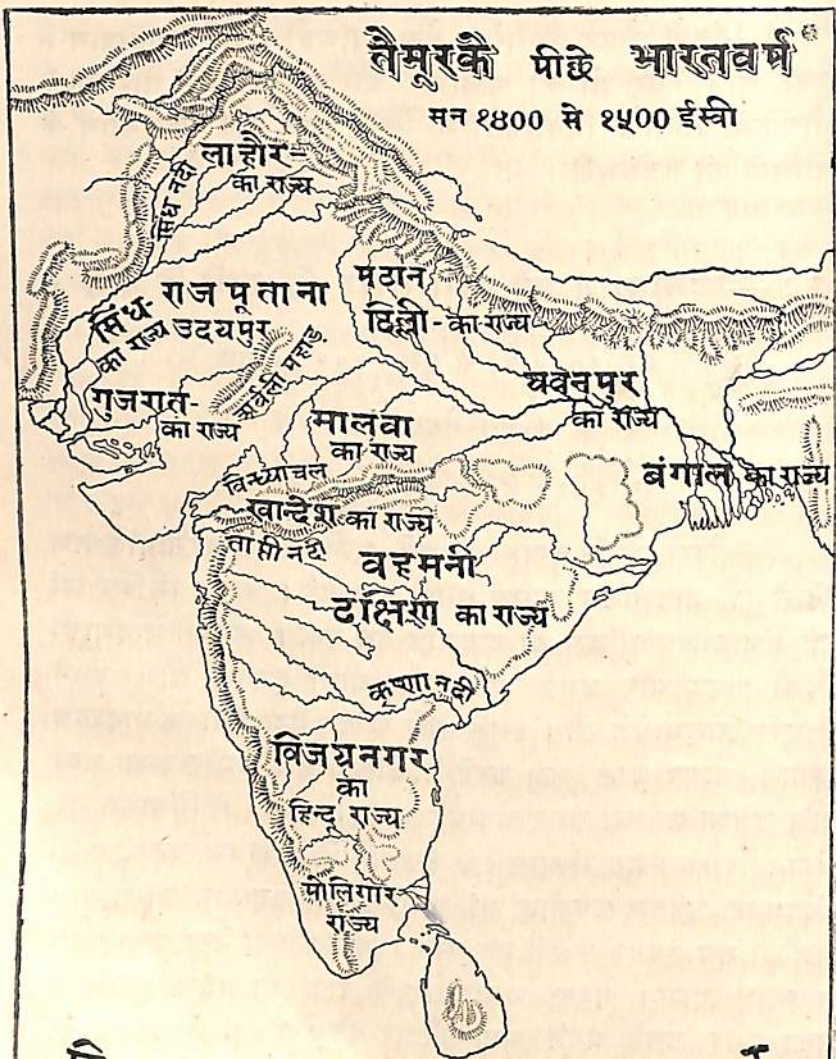 तैमूरकै पीछे भारतवर्ष
सन १४०० से १५०० ईस्वी
लाहौर-
का राज्य
सिंध नदी
सिंध-
का राज्य
राजपूताना
उदयपुर
अर्वली पहाड़
पठान
दिल्ली-का राज्य
यवनपुर
का राज्य
गुजरात-
का राज्य
मालवा
का राज्य
बंगाल का राज्य
विन्ध्याचल
खान्देश का राज्य
ताप्ती नदी
वहमनी
दक्षिण का राज्य
कृष्णा नदी
विजयनगर
का
हिन्दू राज्य
पोलिगार
राज्य